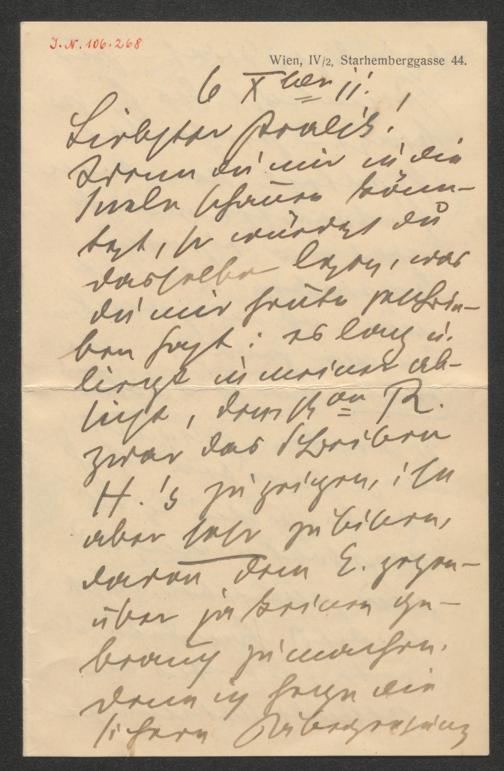 I.N. 106.268
Wien, IV/2, Starhemberggasse 44.
6 Xber 11.
Liebster Kralik!
Wenn du mir in die
Seele schauen könn-
test, so würdest du
dasselbe lesen, was
du mir heute geschrie-
ben hast: es lag u.
liegt in meiner Ab-
sicht, dem R.
zwar das Schreiben
H.'s zu zeigen, ihn
aber sehr zu bitten,
davon dem E. gegen-
über ja keinen Ge-
brauch zu machen.
Denn ich hege die
sichere Überzeugung